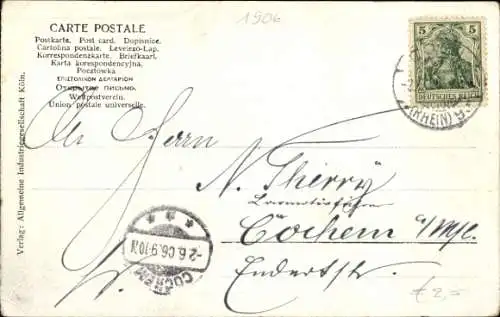 1906
CARTE POSTALE
Postkarte. Post card. Dopisnice.
Cartolina postale. Levelezo-Lap.
Korrespondenzkarte. Briefkaart.
Karta korespondencyjna.
Pocztowka
ΕΠΙΣΤΟΛΙΚΟΝ ΔΕΛΤΑΡΙΟΝ
Открытое письмо.
Weltpostverein.
Union postale universelle.
5 5
DEUTSCHES REICH
(RHEIN)
Herrn
N. Therry
Locomotivführer
Cochem a/Mosel
Enderstr.
COCHEM
-2.6.06.9-10V
€ 2,-
Verlag: Allgemeine Industriegesellschaft Köln.